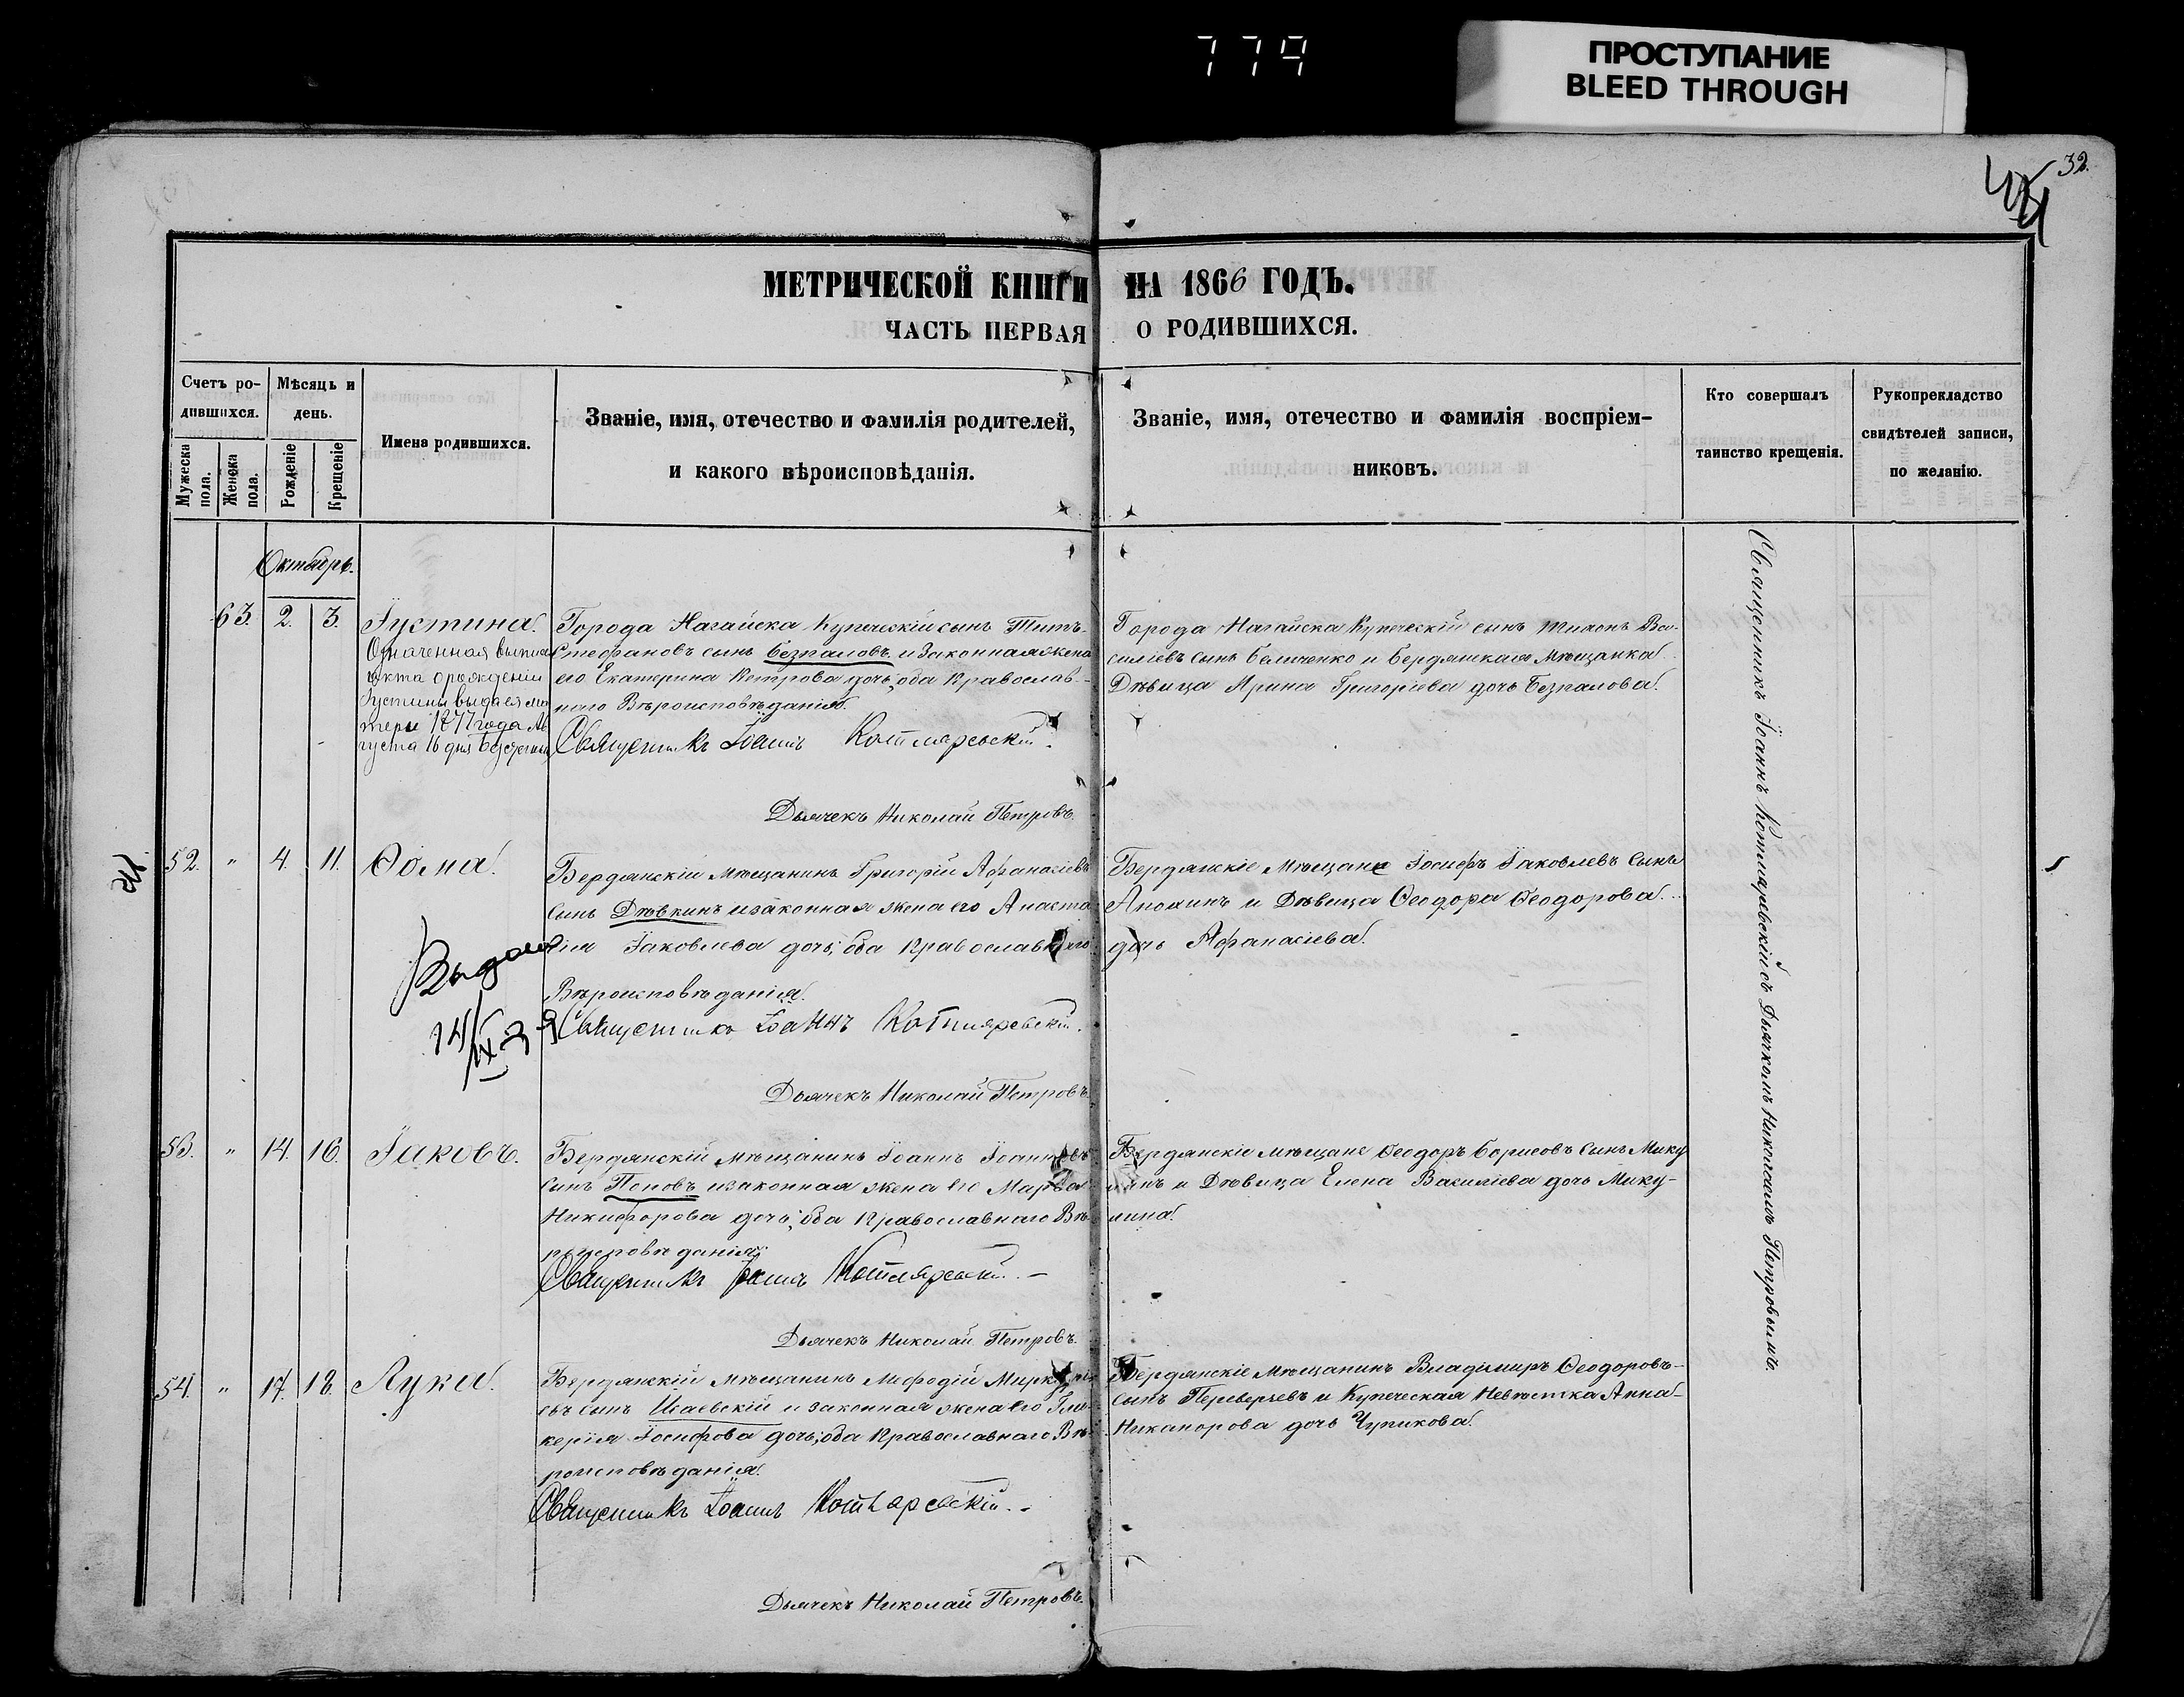 779
ПРОСТУПАНИЕ
BLEED THROUGH
32.
МЕТРИЧЕСКОЙ КНИГИ НА 1866 ГОДЪ.
ЧАСТЬ ПЕРВАЯ О РОДИВШИХСЯ.
Счетъ ро-
дившихся.
Мужеска
пола.
Женска
пола.
Мѣсяцъ и
день.
Рожденіе
Крещеніе
Имена родившихся.
Званіе, имя, отечество и фамилія родителей,
и какого вѣроисповѣданія.
Званіе, имя, отечество и фамилія воспріем-
никовъ.
Кто совершалъ
таинство крещенія.
Рукоприкладство
свидѣтелей записи,
по желанію.
Октябрь.
63. 2. 3. Іустина.
Означенная выпись
акта о рожденіи
Іустины выдана ма
тери 1877 года Ав
густа 16 дня
Города Нагайска Купеческій сынъ Титъ
Стефановъ сынъ Безпаловъ и законная жена
его Екатерина Петрова дочь, оба Православ-
наго Вѣроисповѣданія.
Священникъ Іоаннъ Котляревскій.
Дьячекъ Николай Петровъ.
Города Нагайска Купеческій сынъ Тихонъ Ва-
силіевъ сынъ Беличенко и Бердянская Мѣщанка
Дѣвица Ирина Григоріева дочь Безпалова.
52. " 4. 11. Ѳома.
Выдано
14/IX 39
Бердянскій Мѣщанинъ Григорій Афанасіевъ
сынъ Дѣвкинъ и законная жена его Анаста
сія Іаковлева дочь, оба Православнаго
Вѣроисповѣданія.
Священникъ Іоаннъ Котляревскій.
Дьячекъ Николай Петровъ.
Бердянскіе Мѣщане Іосифъ Іаковлевъ сынъ
Анохинъ и Дѣвица Ѳеодора Ѳеодорова
дочь Афанасіева.
53. " 14. 16. Іаковъ.
Бердянскій Мѣщанинъ Іоаннъ Іоанновъ
сынъ Поповъ и законная жена его Марѳа
Никифорова дочь, оба Православнаго Вѣ-
роисповѣданія.
Священникъ Іоаннъ Котляревскій.
Дьячекъ Николай Петровъ.
Бердянскіе мѣщане Ѳеодоръ Борисовъ сынъ Мику
линъ и Дѣвица Елена Василіева дочь Мику-
лина.
54. " 17. 18. Лука.
Бердянскій Мѣщанинъ Мефодій
евъ сынъ Исаевскій и законная жена его Гли-
керія Іосифова дочь, оба Православнаго Вѣ-
роисповѣданія.
Священникъ Іоаннъ Котляревскій.
Дьячекъ Николай Петровъ.
Бердянскіе Мѣщанинъ Владимиръ Ѳеодоровъ
сынъ Переверзевъ и Купеческая Невѣстка Анна
Никанорова дочь Чупикова.
Священникъ Іоаннъ Котляревскій съ Дьячкомъ Николаемъ Петровымъ